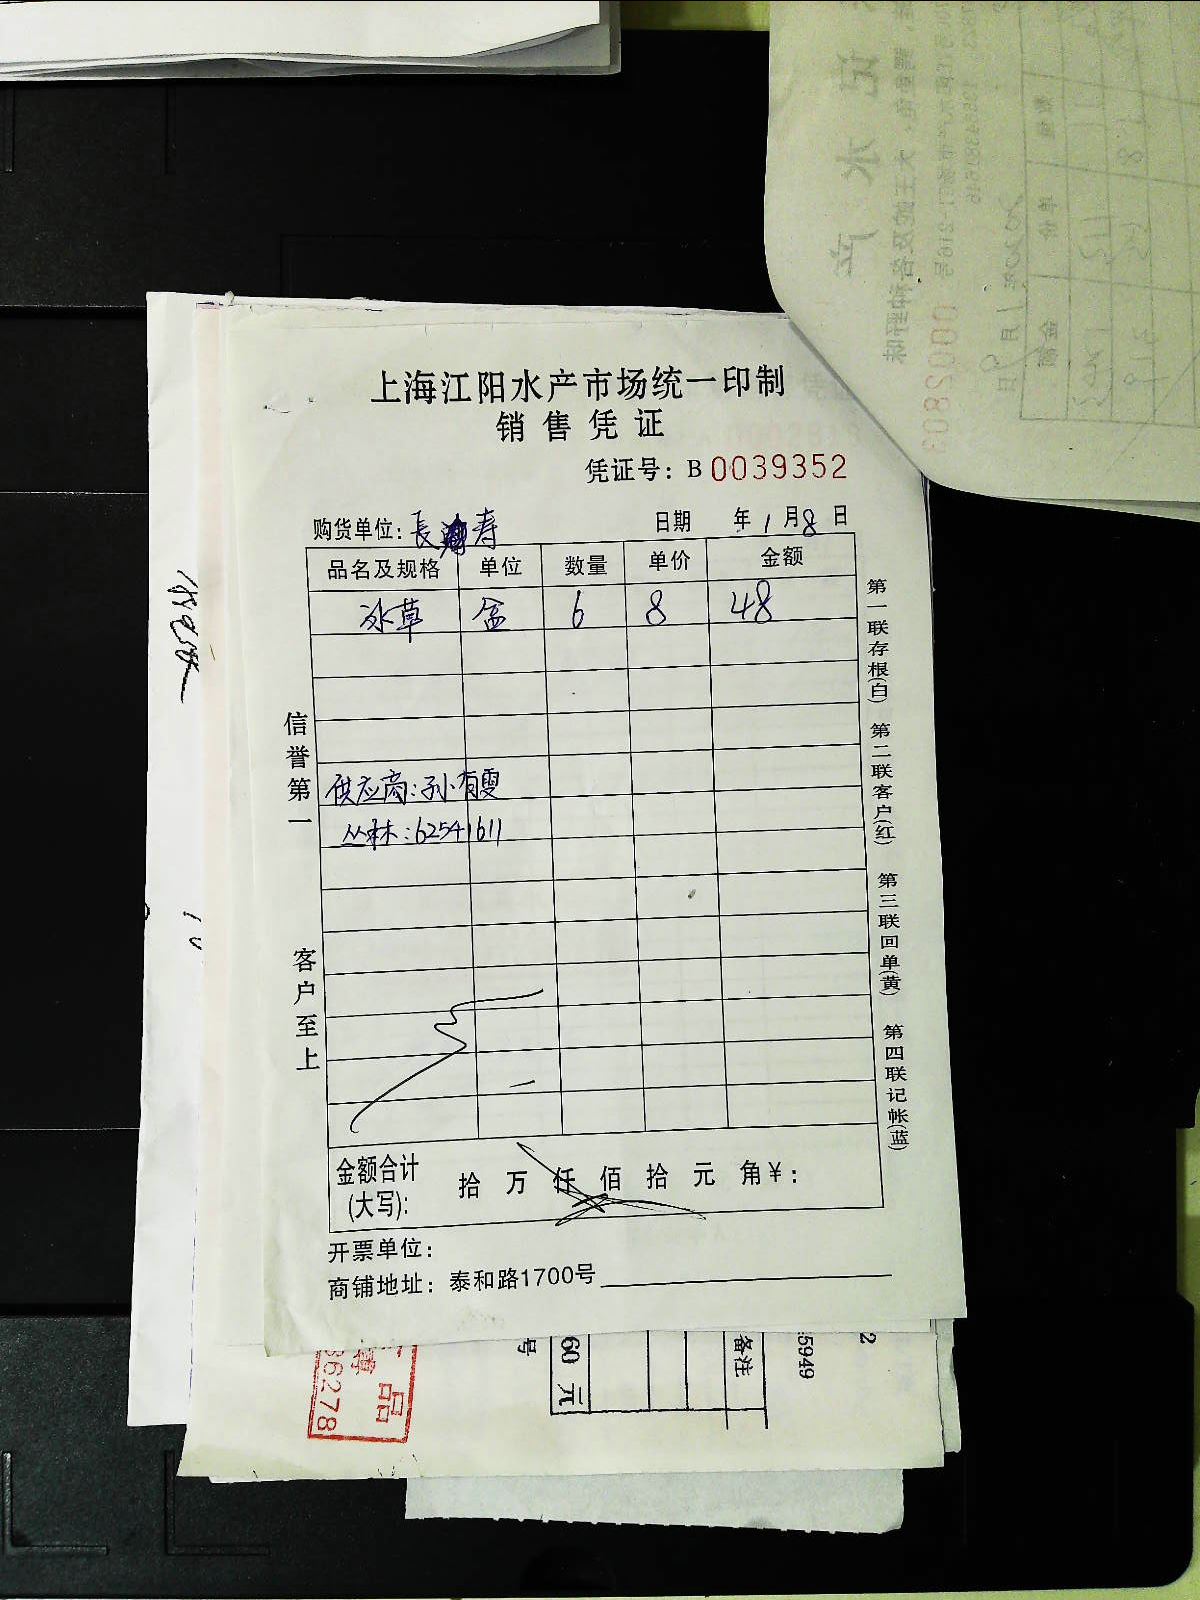 上海江阳水产市场统一印制
销售凭证
凭证号: B 0039352
购货单位: 長 寿 日期 年 1 月 8 日
品名及规格 单位 数量 单价 金额
冰草 盒 6 8 48
供应商:孙有雯
丛林:62541611
信誉第一
客户至上
第一联存根(白) 第二联客户(红) 第三联回单(黄) 第四联记帐(蓝)
金额合计(大写): 拾 万 仟 佰 拾 元 角 ¥:
开票单位:
商铺地址: 泰和路1700号
60 元
号
备注
5949
2
品
36278
0002803